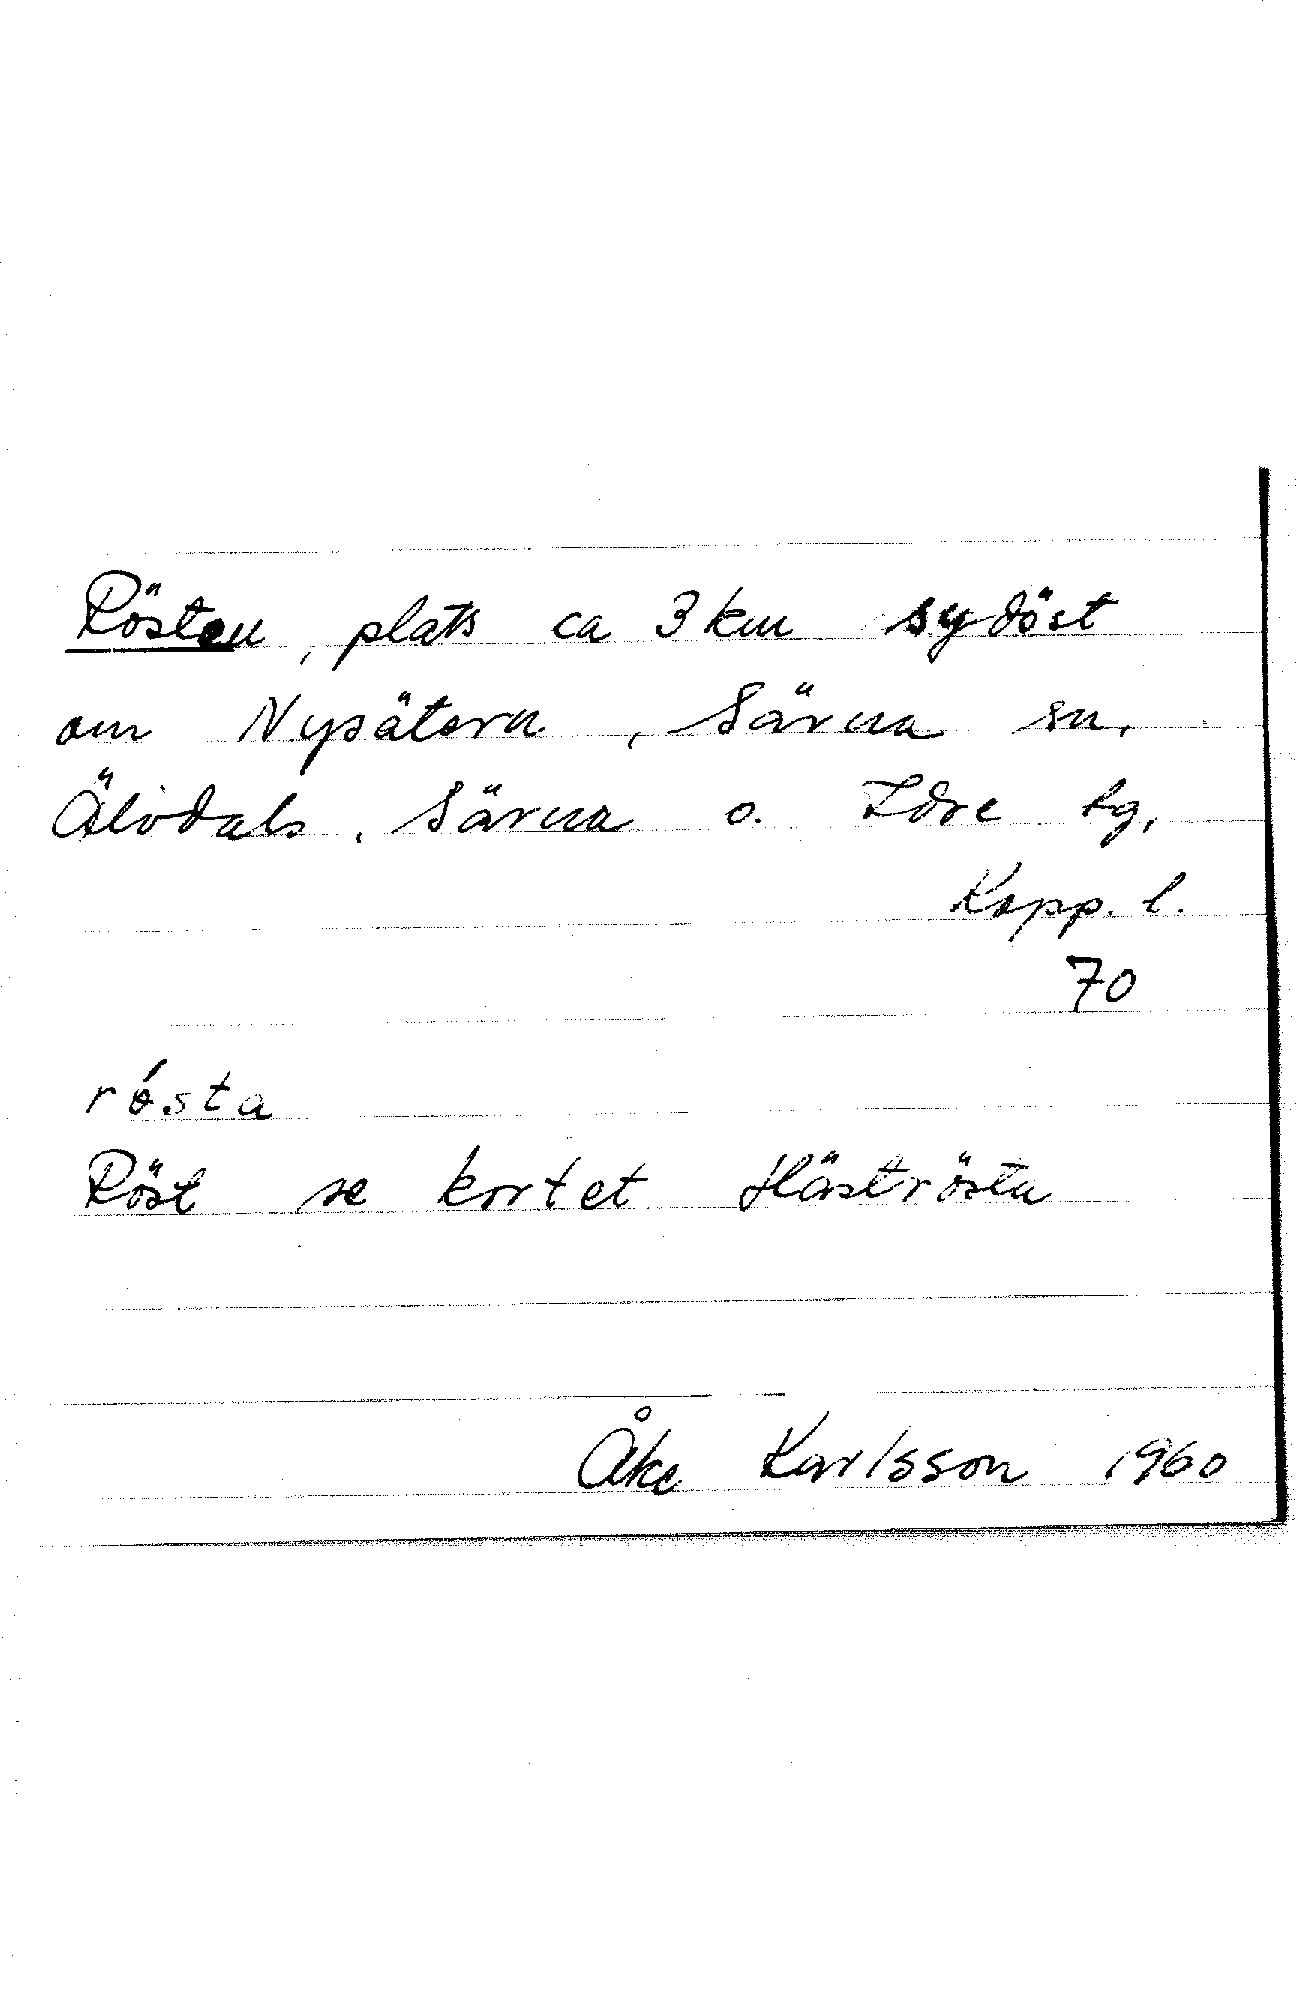 Rösten, plats ca 3 km sydöst
om Nysätern, Särna sn,
Älvdals, Särna o. Idre tg,
Kopp. l.
70
rǿsta
Röst se kortet Häströstn
Åke Karlsson 1960